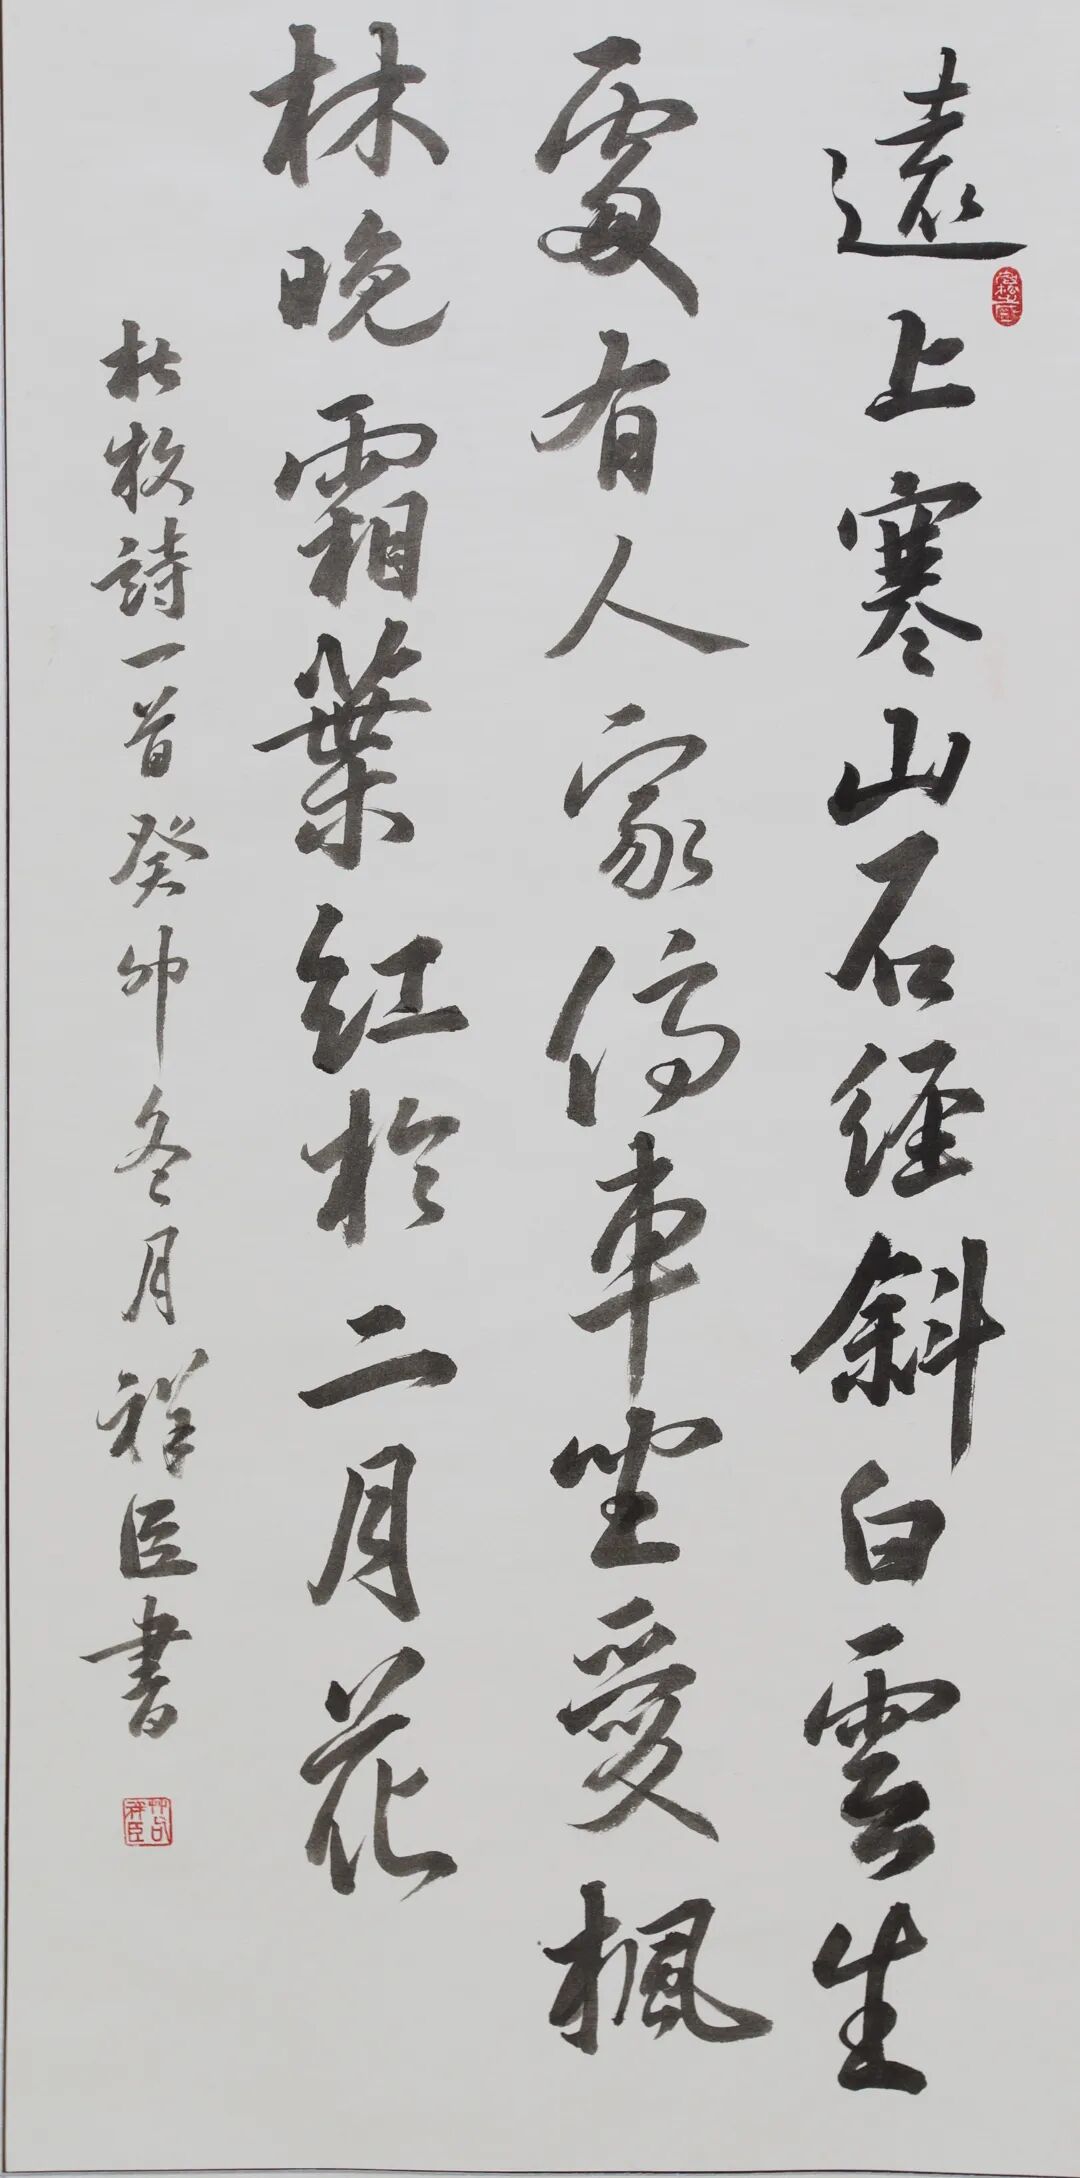 遠上寒山石径斜白雲生
處有人家停車坐愛楓
林晚霜葉紅於二月花
杜牧詩一首癸卯冬月祥臣書